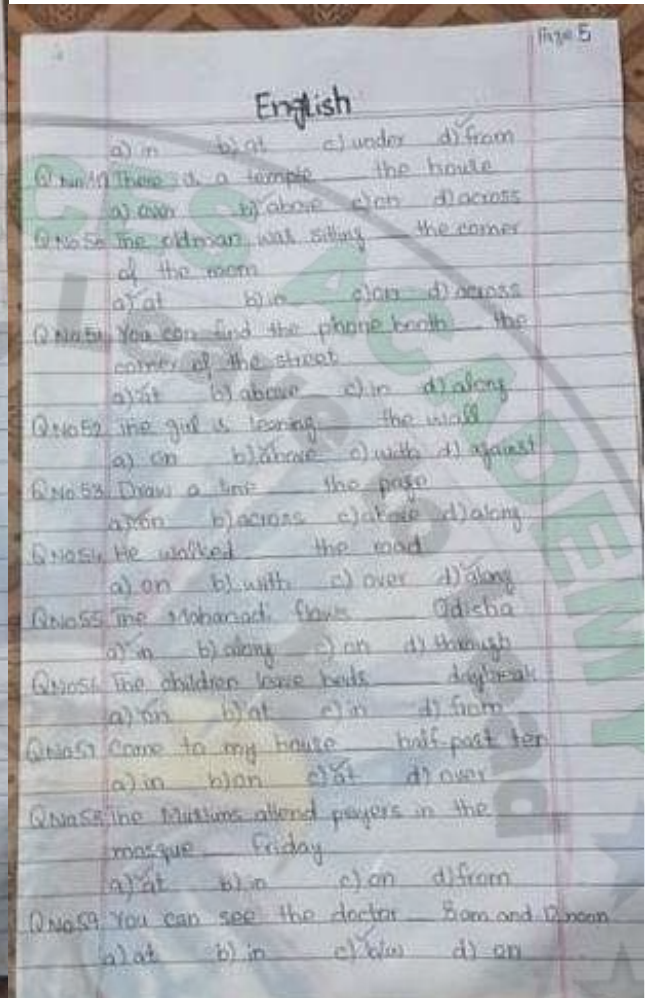 Page 5
English
a) in b) at c) under d) from
Q.No49 There is a temple ___ the house
a) over b) above c) on d) across
Q.No50 The oldman was sitting ___ the corner
of the room
a) at b) in c) on d) across
Q.No51 You can find the phone booth ___ the
corner of the street
a) at b) above c) in d) along
Q.No52 The girl is leaning ___ the wall
a) on b) above c) with d) against
Q.No53 Draw a line ___ the page
a) on b) across c) above d) along
Q.No54 He walked ___ the road
a) on b) with c) over d) along
Q.No55 The Mahanadi flows ___ Odisha
a) in b) along c) on d) through
Q.No56 The children leave beds ___ daybreak
a) on b) at c) in d) from
Q.No57 Come to my house ___ half-past ten
a) in b) on c) at d) over
Q.No58 The Muslims attend payers in the
masque ___ Friday
a) at b) in c) on d) from
Q.No59 You can see the doctor ___ 8am and 12noon
a) at b) in c) b/w d) on
CCS ACADEMY
to Lead